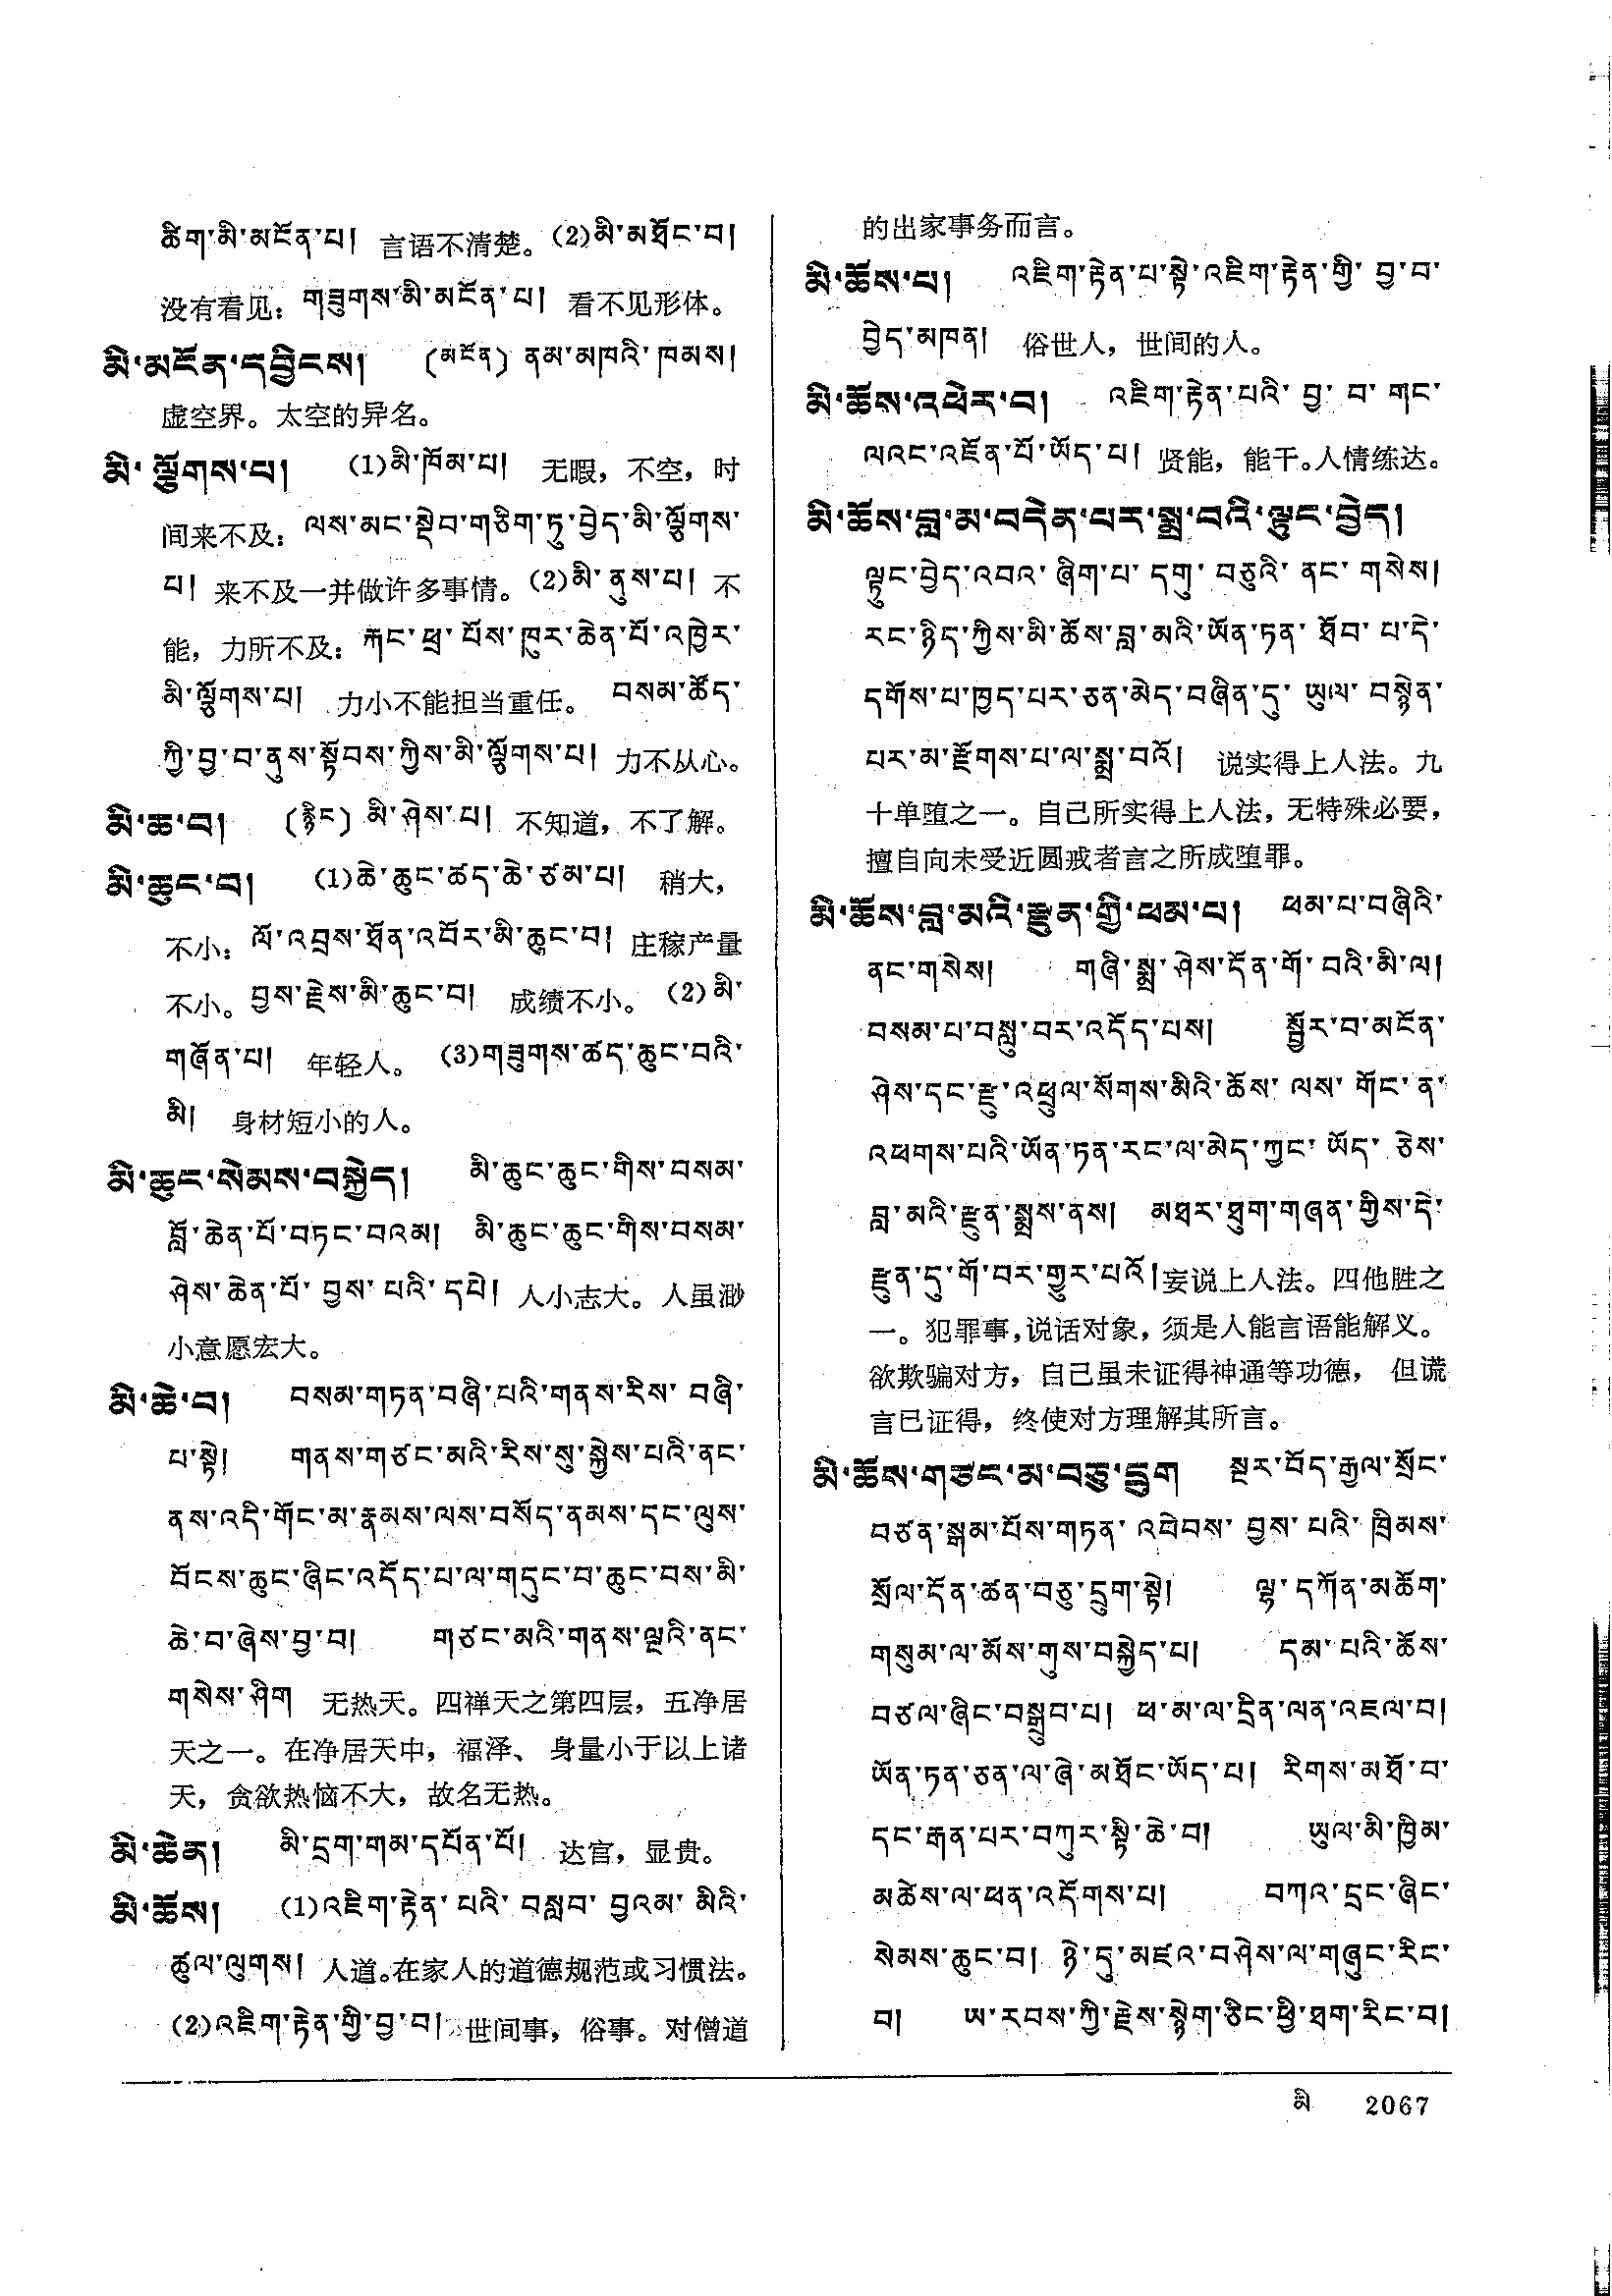 ཚིག་མི་མངོན་པ། 言语不清楚。(2)མི་མཐོང་བ།
没有看见：གཟུགས་མི་མངོན་པ། 看不见形体。
མི་མངོན་དབྱིངས། (མངོན) ནམ་མཁའི་ཁམས།
虚空界。太空的异名。
མི་ལྕོགས་པ། (1)མི་ཁོམ་པ། 无暇，不空，时
间来不及：ལས་མང་སྡེབ་གཅིག་ཏུ་བྱེད་མི་ལྕོགས་
པ། 来不及一并做许多事情。(2)མི་ནུས་པ། 不
能，力所不及：རྐང་ཕྲ་པོས་ཁུར་ཆེན་པོ་འཁྱེར་
མི་ལྕོགས་པ། 力小不能担当重任。 བསམ་ཚོད་
ཀྱི་བྱ་བ་ནུས་སྟོབས་ཀྱིས་མི་ལྕོགས་པ། 力不从心。
མི་ཆ་བ། (རྙིང) མི་ཤེས་པ། 不知道，不了解。
མི་ཆུང་བ། (1)ཆེ་ཆུང་ཚད་ཆེ་ཙམ་པ། 稍大，
不小：ལོ་འབྲས་ཐོན་འབོར་མི་ཆུང་བ། 庄稼产量
不小。བྱས་རྗེས་མི་ཆུང་བ། 成绩不小。(2)མི་
གཞོན་པ། 年轻人。(3)གཟུགས་ཚད་ཆུང་བའི་
མི། 身材短小的人。
མི་ཆུང་སེམས་བསྐྱེད། མི་ཆུང་ཆུང་གིས་བསམ་
བློ་ཆེན་པོ་བཏང་བའམ། མི་ཆུང་ཆུང་གིས་བསམ་
ཤེས་ཆེན་པོ་བྱས་པའི་དཔེ། 人小志大。人虽渺
小意愿宏大。
མི་ཆེ་བ། བསམ་གཏན་བཞི་པའི་གནས་རིས་བཞི་
པ་སྟེ། གནས་གཙང་མའི་རིས་སུ་སྐྱེས་པའི་ནང་
ནས་འདི་གོང་མ་རྣམས་ལས་བསོད་ནམས་དང་ལུས་
བོངས་ཆུང་ཞིང་འདོད་པ་ལ་གདུང་བ་ཆུང་བས་མི་
ཆེ་བ་ཞེས་བྱ་བ། གཙང་མའི་གནས་ལྔའི་ནང་
གསེས་ཤིག 无热天。四禅天之第四层，五净居
天之一。在净居天中，福泽、身量小于以上诸
天，贪欲热恼不大，故名无热。
མི་ཆེན། མི་དྲག་གམ་དཔོན་པོ། 达官，显贵。
མི་ཆོས། (1)འཇིག་རྟེན་པའི་བསླབ་བྱའམ་མིའི་
ཚུལ་ལུགས། 人道。在家人的道德规范或习惯法。
(2)འཇིག་རྟེན་གྱི་བྱ་བ། 世间事，俗事。对僧道
的出家事务而言。
མི་ཆོས་པ། འཇིག་རྟེན་པ་སྟེ་འཇིག་རྟེན་གྱི་བྱ་བ་
བྱེད་མཁན། 俗世人，世间的人。
མི་ཆོས་འཕེར་བ། འཇིག་རྟེན་པའི་བྱ་བ་གང་
ལའང་འཇོན་པོ་ཡོད་པ། 贤能，能干。人情练达。
མི་ཆོས་བླ་མ་བདེན་པར་སྨྲ་བའི་ལྟུང་བྱེད།
ལྟུང་བྱེད་འབའ་ཞིག་པ་དགུ་བཅུའི་ནང་གསེས།
རང་ཉིད་ཀྱིས་མི་ཆོས་བླ་མའི་ཡོན་ཏན་ཐོབ་པ་དེ་
དགོས་པ་ཁྱད་པར་ཅན་མེད་བཞིན་དུ་ཡུལ་བསྙེན་
པར་མ་རྫོགས་པ་ལ་སྨྲ་བའོ། 说实得上人法。九
十单堕之一。自己所实得上人法，无特殊必要，
擅自向未受近圆戒者言之所成堕罪。
མི་ཆོས་བླ་མའི་རྫུན་གྱི་ཕམ་པ། ཕམ་པ་བཞིའི་
ནང་གསེས། གཞི་སྨྲ་ཤེས་དོན་གོ་བའི་མི་ལ།
བསམ་པ་བསླུ་བར་འདོད་པས། སྦྱོར་བ་མངོན་
ཤེས་དང་རྫུ་འཕྲུལ་སོགས་མིའི་ཆོས་ལས་གོང་ན་
འཕགས་པའི་ཡོན་ཏན་རང་ལ་མེད་ཀྱང་ཡོད་ཅེས་
བླ་མའི་རྫུན་སྨྲས་ནས། མཐར་ཐུག་གཞན་གྱིས་དེ་
རྫུན་དུ་གོ་བར་གྱུར་པའོ། 妄说上人法。四他胜之
一。犯罪事，说话对象，须是人能言语能解义。
欲欺骗对方，自己虽未证得神通等功德，但谎
言已证得，终使对方理解其所言。
མི་ཆོས་གཙང་མ་བཅུ་དྲུག སྔར་བོད་རྒྱལ་སྲོང་
བཙན་སྒམ་པོས་གཏན་འབེབས་བྱས་པའི་ཁྲིམས་
སྲོལ་དོན་ཚན་བཅུ་དྲུག་སྟེ། ལྷ་དཀོན་མཆོག་
གསུམ་ལ་མོས་གུས་བསྐྱེད་པ། དམ་པའི་ཆོས་
བཙལ་ཞིང་བསྒྲུབ་པ། ཕ་མ་ལ་དྲིན་ལན་འཇལ་བ།
ཡོན་ཏན་ཅན་ལ་ཞེ་མཐོང་ཡོད་པ། རིགས་མཐོ་བ་
དང་རྒན་པར་བཀུར་སྟི་ཆེ་བ། ཡུལ་མི་ཁྱིམ་
མཚེས་ལ་ཕན་འདོགས་པ། བཀའ་དྲང་ཞིང་
སེམས་ཆུང་བ། ཉེ་དུ་མཛའ་བཤེས་ལ་གཞུང་རིང་
བ། ཡ་རབས་ཀྱི་རྗེས་སྙེག་ཅིང་ཕྱི་ཐག་རིང་བ།
མི 2067